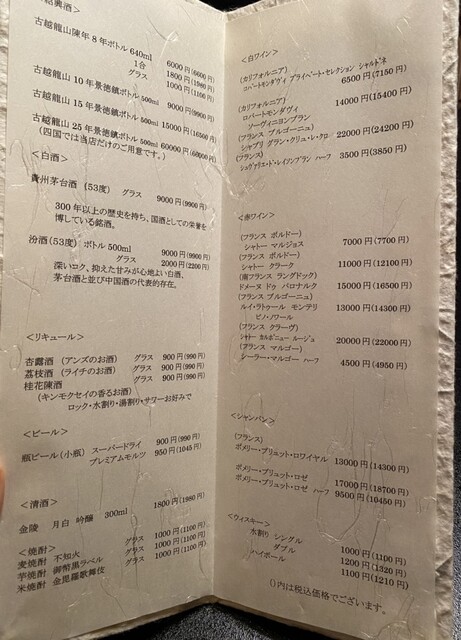 <紹興酒>
古越龍山陳年8年ボトル640ml 6000円(6600円)
1合 1800円(1980円)
グラス 1000円(1100円)
古越龍山 10年景徳鎮ボトル500ml 9000円(9900円)
古越龍山 15年景徳鎮ボトル500ml 15000円(16500円)
古越龍山 25年景徳鎮ボトル500ml 60000円(66000円)
(四国では当店だけのご用意です。)
<白酒>
貴州茅台酒 (53度) グラス 9000円(9900円)
300年以上の歴史を持ち、国酒としての栄誉を
博している銘酒。
汾酒(53度) ボトル500ml 9000円(9900円)
グラス 2000円(2200円)
深いコク、抑えた甘みが心地よい白酒。
茅台酒と並び中国酒の代表的存在。
<リキュール>
杏露酒 (アンズのお酒) グラス 900円(990円)
茘枝酒 (ライチのお酒) グラス 900円(990円)
桂花陳酒 グラス 900円(990円)
(キンモクセイの香るお酒)
ロック・水割り・湯割り・サワーお好みで
<ビール>
瓶ビール(小瓶) スーパードライ 900円(990円)
プレミアムモルツ 950円(1045円)
<清酒>
金陵 月白 吟醸 300ml 1800円(1980円)
<焼酎>
麦焼酎 不知火 グラス 1000円(1100円)
芋焼酎 御幣黒ラベル グラス 1000円(1100円)
米焼酎 金毘羅歌舞伎 グラス 1000円(1100円)
<白ワイン>
(カリフォルニア)
ロバートモンダヴィ プライベート・セレクション シャルドネ
6500円(7150円)
(カリフォルニア)
ロバートモンダヴィ 14000円(15400円)
ソーヴィニヨンブラン
(フランス ブルゴーニュ)
シャブリ グラン・クリュ・レ・クロ 22000円(24200円)
(フランス)
シュヴァリエ・ド・レイソンブラン ハーフ 3500円(3850円)
<赤ワイン>
(フランス ボルドー)
シャトー マルジョス 7000円(7700円)
(フランス ボルドー)
シャトー クラーク 11000円(12100円)
(南フランス ラングドック)
ドメーヌ ドゥ バロナルク 15000円(16500円)
(フランス ブルゴーニュ)
ルイ・ラトゥール モンテリ 13000円(14300円)
ピノ・ノワール
(フランス グラーヴ)
シャトー カルボニュー ルージュ 20000円(22000円)
(フランス マルゴー)
シーラー・マルゴー ハーフ 4500円(4950円)
<シャンパン>
(フランス)
ポメリー・ブリュット・ロワイヤル 13000円(14300円)
ポメリー・ブリュット・ロゼ 17000円(18700円)
ポメリー・ブリュット・ロゼ ハーフ 9500円(10450円)
<ウィスキー>
水割り シングル 1000円(1100円)
ダブル 1200円(1320円)
ハイボール 1100円(1210円)
()内は税込価格でございます。